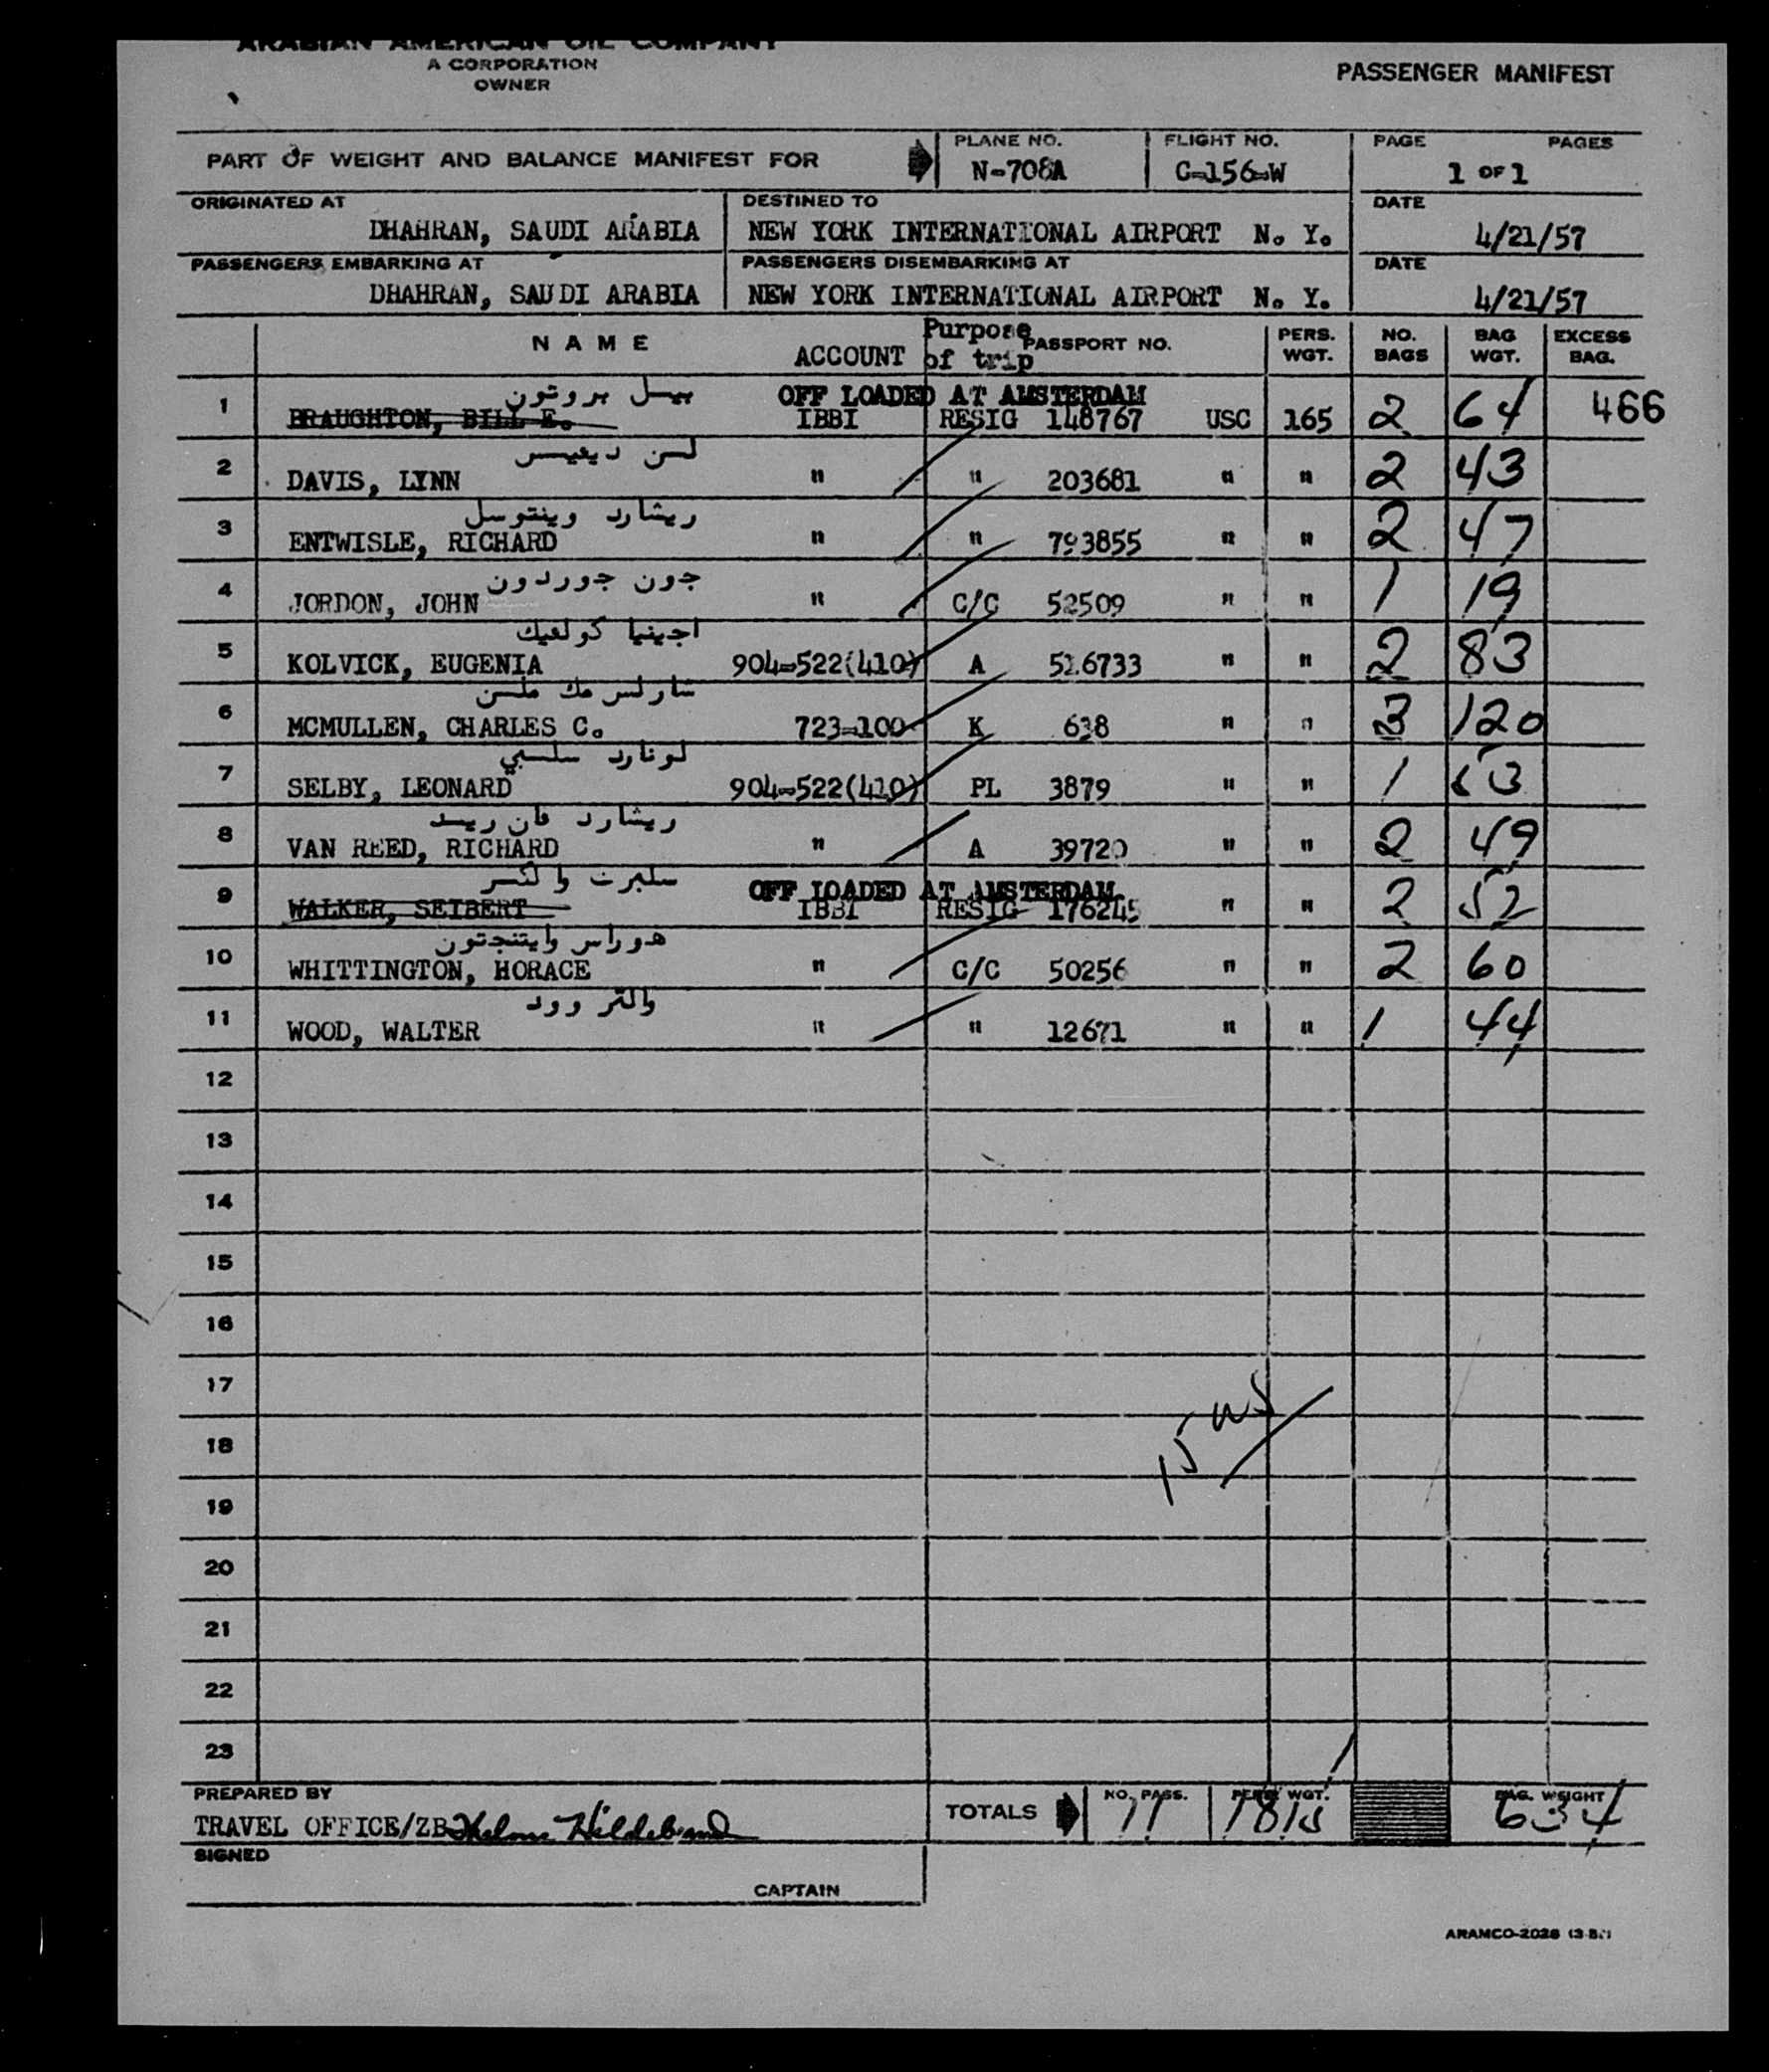 ARABIAN AMERICAN OIL COMPANY
A CORPORATION
OWNER
PASSENGER MANIFEST
PART OF WEIGHT AND BALANCE MANIFEST FOR
PLANE NO. FLIGHT NO. PAGE PAGES
N-708A C-156-W 1 OF 1
ORIGINATED AT DESTINED TO DATE
DHAHRAN, SAUDI ARABIA NEW YORK INTERNATIONAL AIRPORT N. Y. 4/21/57
PASSENGERS EMBARKING AT PASSENGERS DISEMBARKING AT DATE
DHAHRAN, SAUDI ARABIA NEW YORK INTERNATIONAL AIRPORT N. Y. 4/21/57
NAME ACCOUNT Purpose of trip PASSPORT NO. PERS. WGT. NO. BAGS BAG WGT. EXCESS BAG.
بيسل بروتون OFF LOADED AT AMSTERDAM
1 BRAUGHTON, BILL E. IBBI RESIG 148767 USC 165 2 64 466
لسن ديفيس
2 DAVIS, LYNN " " 203681 " " 2 43
ريشارد وينتوسل
3 ENTWISLE, RICHARD " " 793855 " " 2 47
جون جوردون
4 JORDON, JOHN " C/C 52509 " " 1 19
اجينيا كولفيك
5 KOLVICK, EUGENIA 904-522(410) A 526733 " " 2 83
شارلس مك ملسن
6 MCMULLEN, CHARLES C. 723-100 K 638 " " 3 120
لونارد سلسبي
7 SELBY, LEONARD 904-522(410) PL 3879 " " 1 53
ريشارد فان ريسد
8 VAN REED, RICHARD " A 39720 " " 2 49
سلبرت والكسر OFF LOADED AT AMSTERDAM
9 WALKER, SEIBERT IBBI RESIG 176245 " " 2 52
هوراس وايتنجتون
10 WHITTINGTON, HORACE " C/C 50256 " " 2 60
والتر وود
11 WOOD, WALTER " " 12671 " " 1 44
12
13
14
15
16
17
18
19
20
21
22
23
PREPARED BY
TRAVEL OFFICE/ZB Thelma Hildebrand
TOTALS NO. PASS. 11 PERS. WGT. 1815 BAG. WEIGHT 634
SIGNED
CAPTAIN
ARAMCO-2026